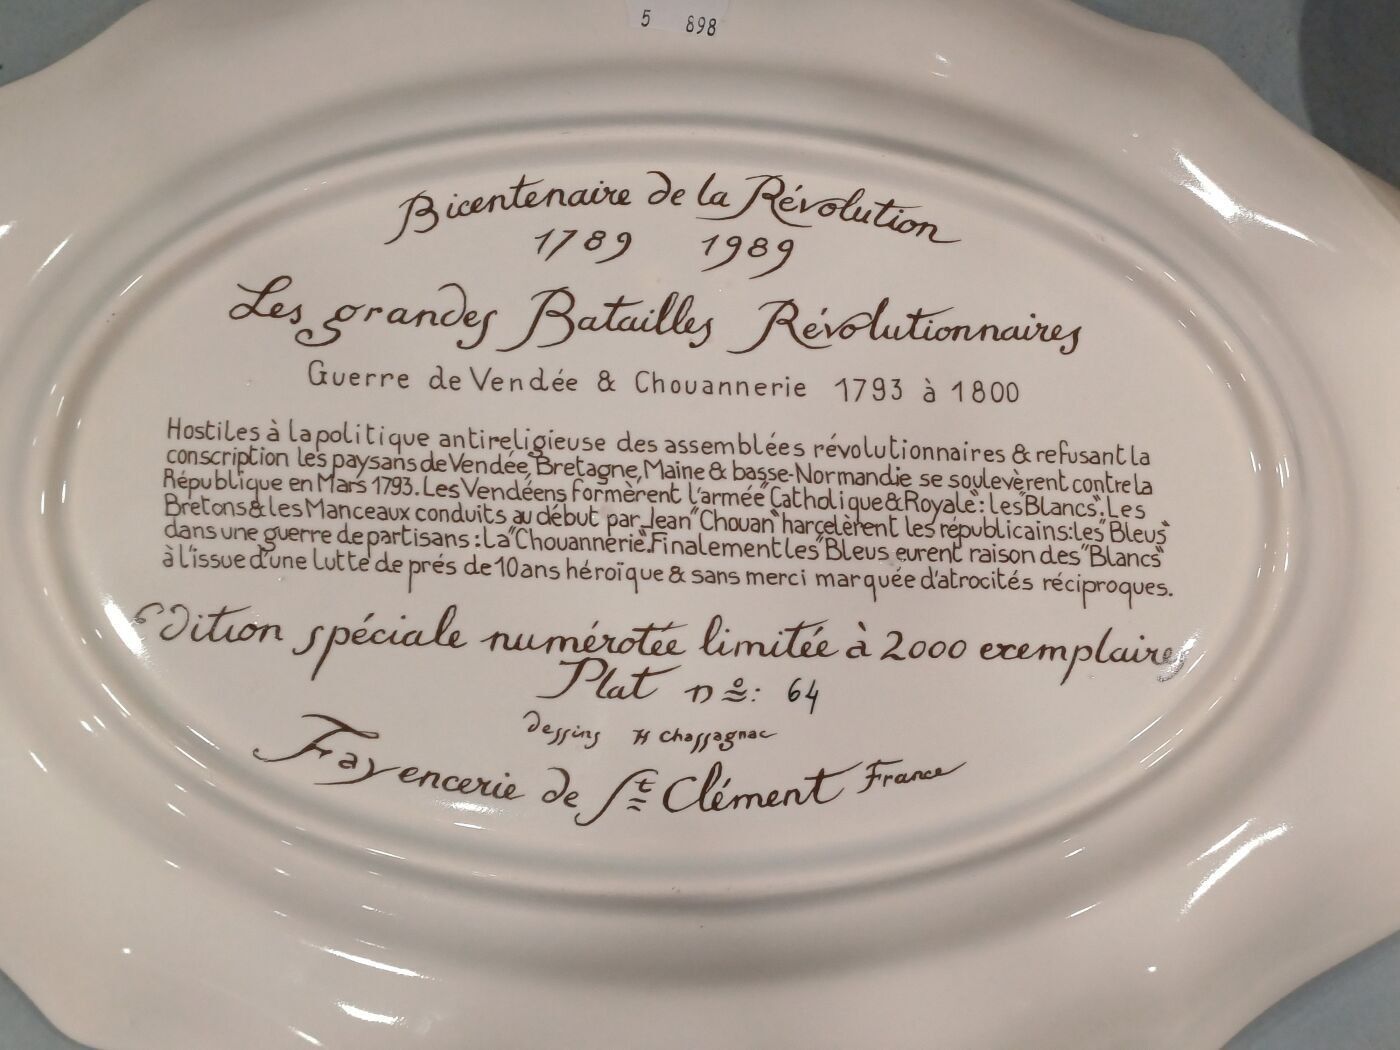 5 898
Bicentenaire de la Révolution
1789 1989
Les grandes Batailles Révolutionnaires
Guerre de Vendée & Chouannerie 1793 à 1800
Hostiles à la politique antireligieuse des assemblées révolutionnaires & refusant la
conscription les paysans de Vendée, Bretagne, Maine & basse-Normandie se soulevèrent contre la
République en Mars 1793. Les Vendéens formèrent l'armée "Catholique & Royale": les "Blancs". Les
Bretons & les Manceaux conduits au début par Jean "Chouan" harcelèrent les républicains: les "Bleus"
dans une guerre de partisans: La "Chouannerie". Finalement les "Bleus eurent raison des "Blancs"
à l'issue d'une lutte de prés de 10 ans héroïque & sans merci marquée d'atrocités réciproques.
Edition spéciale numérotée limitée à 2000 exemplaires
Plat nº: 64
dessins H Chassagnac
Fayencerie de St Clément France